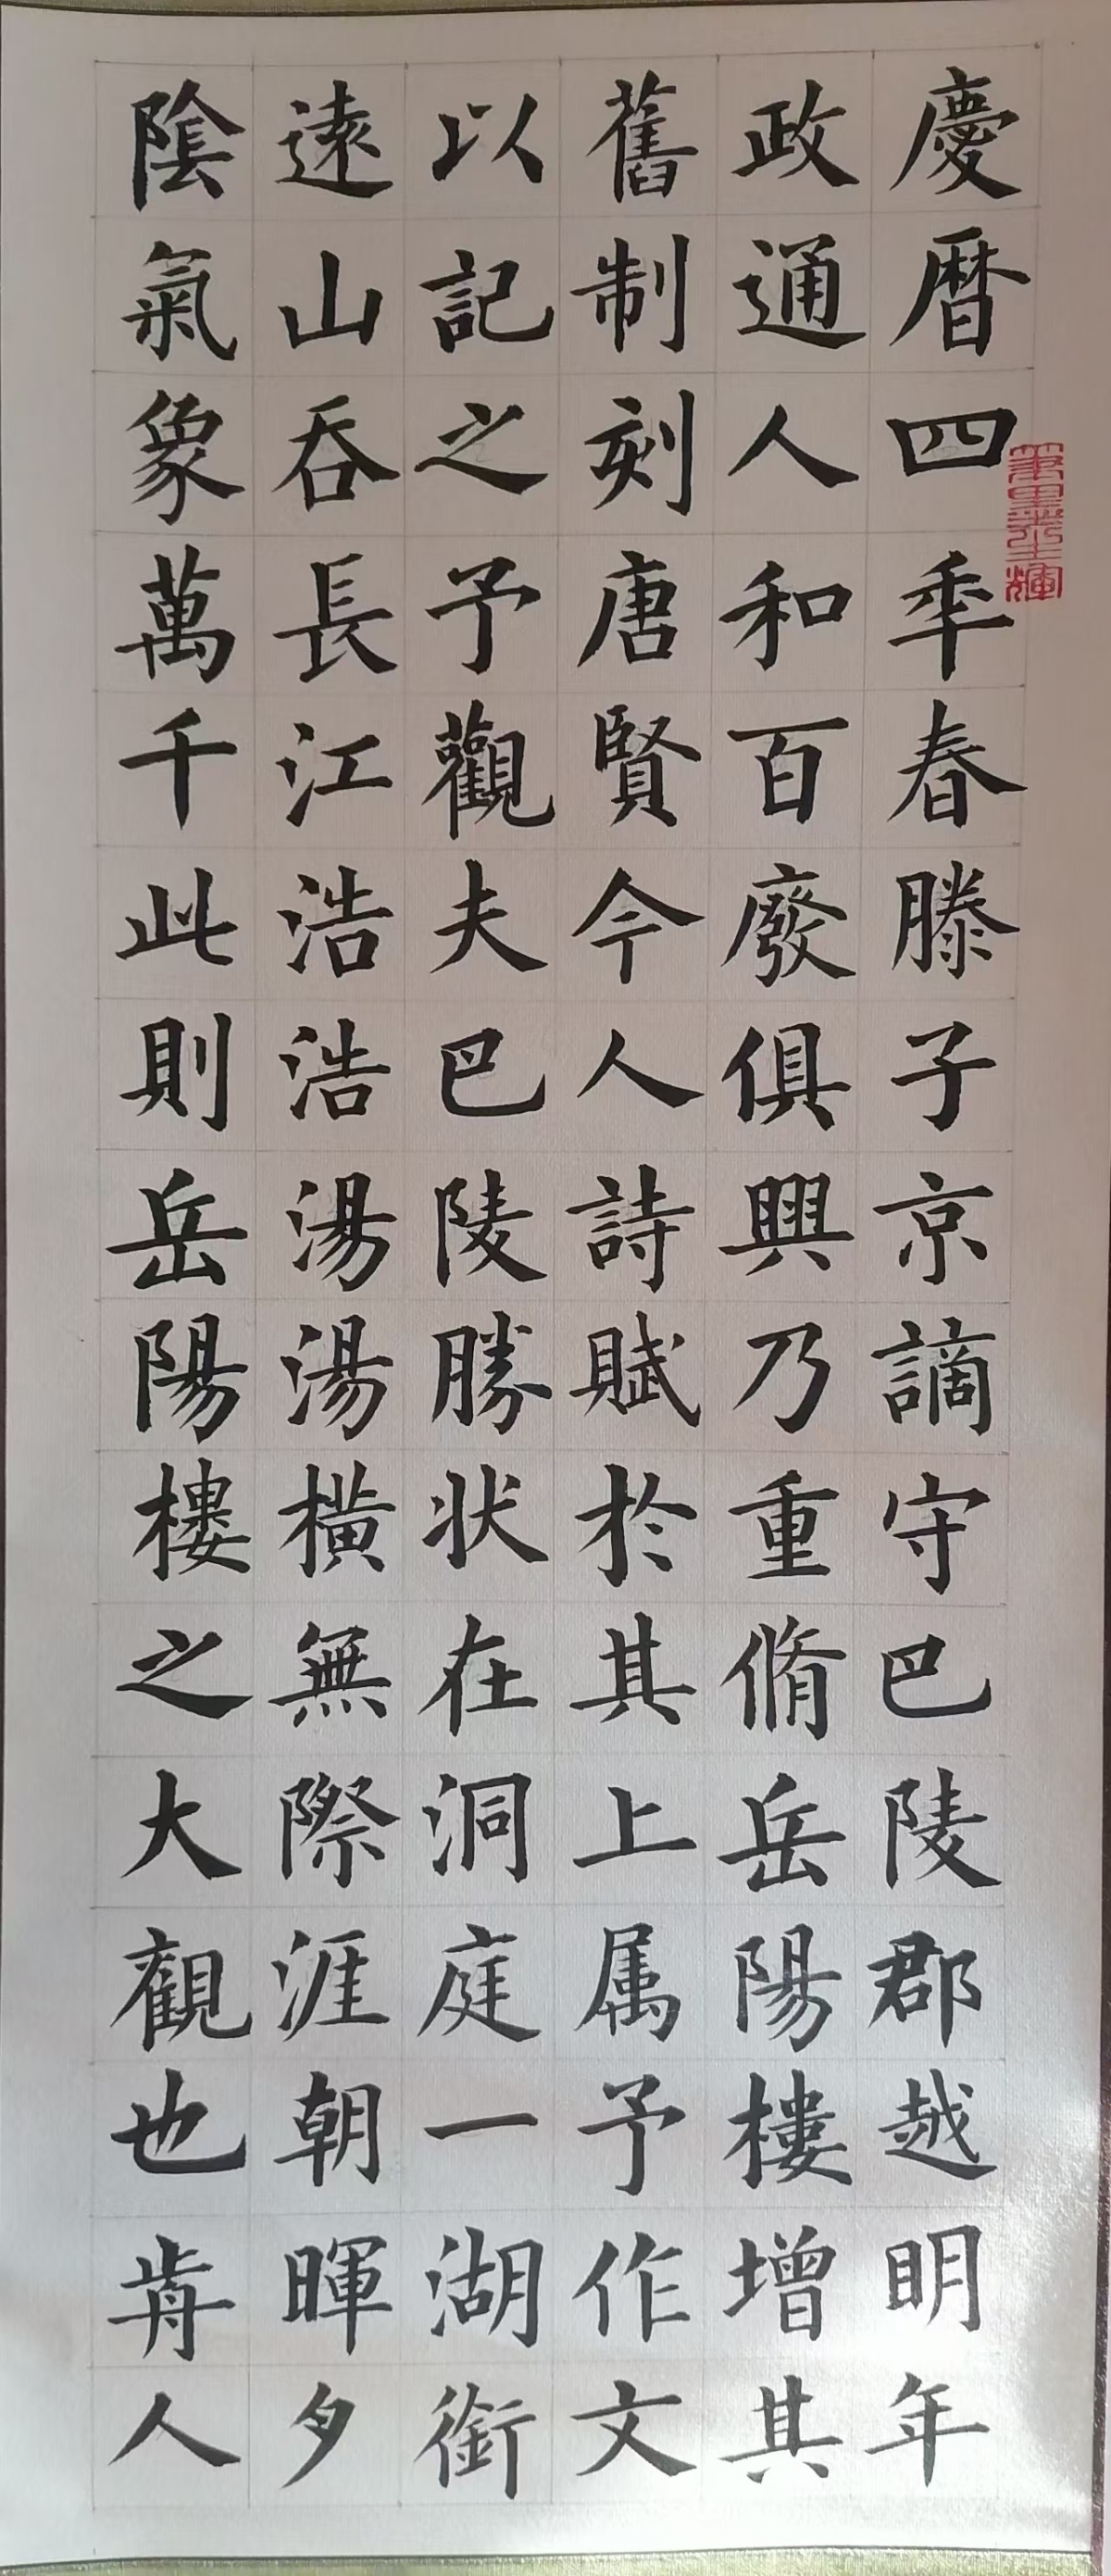 慶曆四年春滕子京謫守巴陵郡越明年
政通人和百廢俱興乃重脩岳陽樓增其
舊制刻唐賢今人詩賦於其上属予作文
以記之予觀夫巴陵勝状在洞庭一湖銜
遠山吞長江浩浩湯湯橫無際涯朝暉夕
陰氣象萬千此則岳陽樓之大觀也歬人
筆墨光生輝